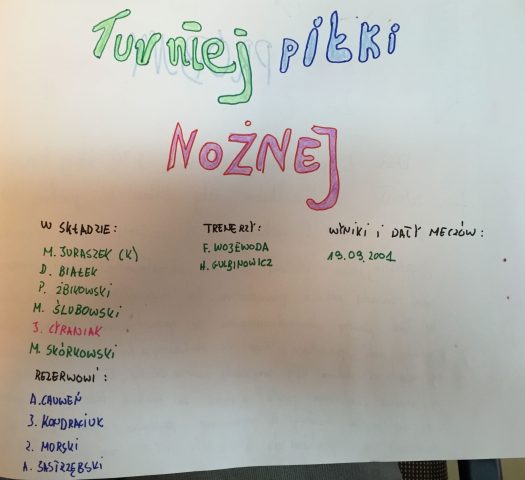 Turniej piłki
Nożnej
W SKŁADZIE:
M. JURASZEK (K)
D. BIAŁEK
P. ŻBIKOWSKI
M. ŚLUBOWSKI
J. CYRANIAK
M. SKÓRKOWSKI
REZERWOWI:
A. CAUWEŃ
J. KONDRACIUK
Z. MORSKI
A. JASTRZĘBSKI
TRENERZY:
F. WOJEWODA
H. GULBINOWICZ
WYNIKI I DATY MECZÓW:
19.09.2001